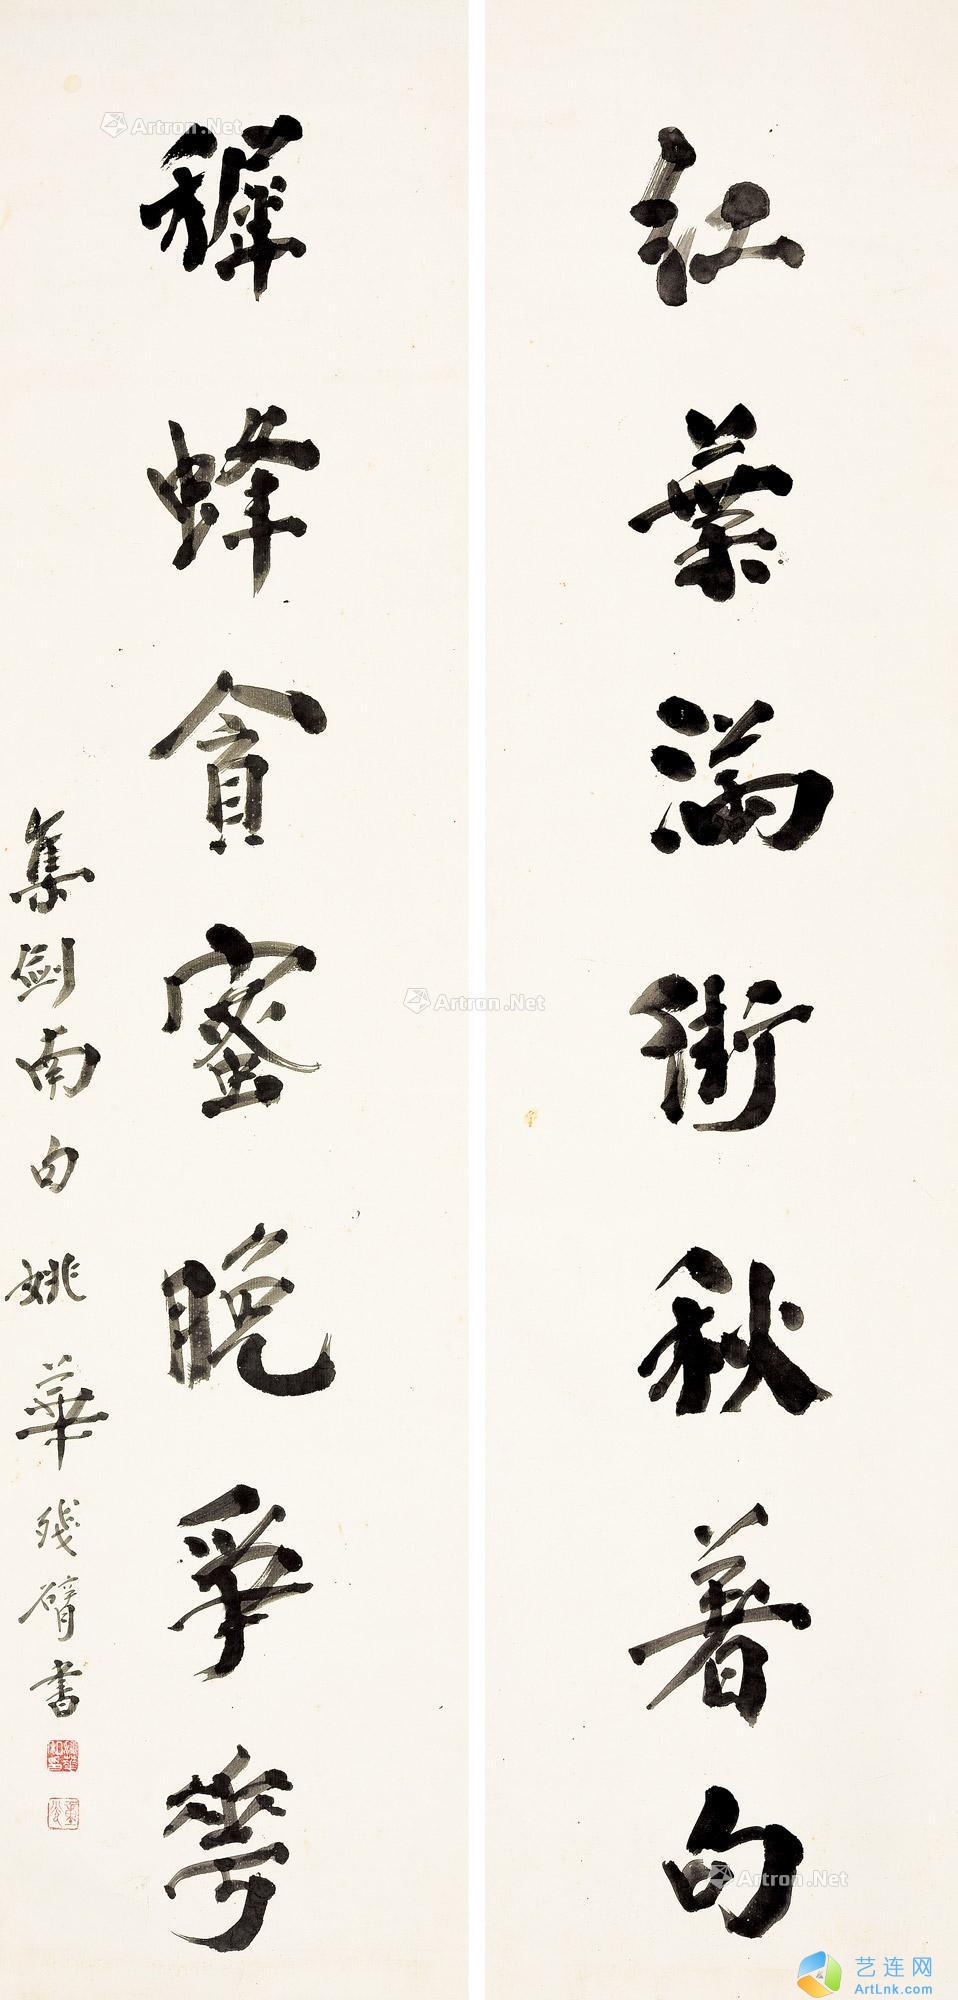 红葉滿街秋著句
穉蜂貪蜜晚爭花
集劍南句 姚華殘臂書
Artron.Net
Artron.Net
Artron.Net
艺连网
ArtLnk.com